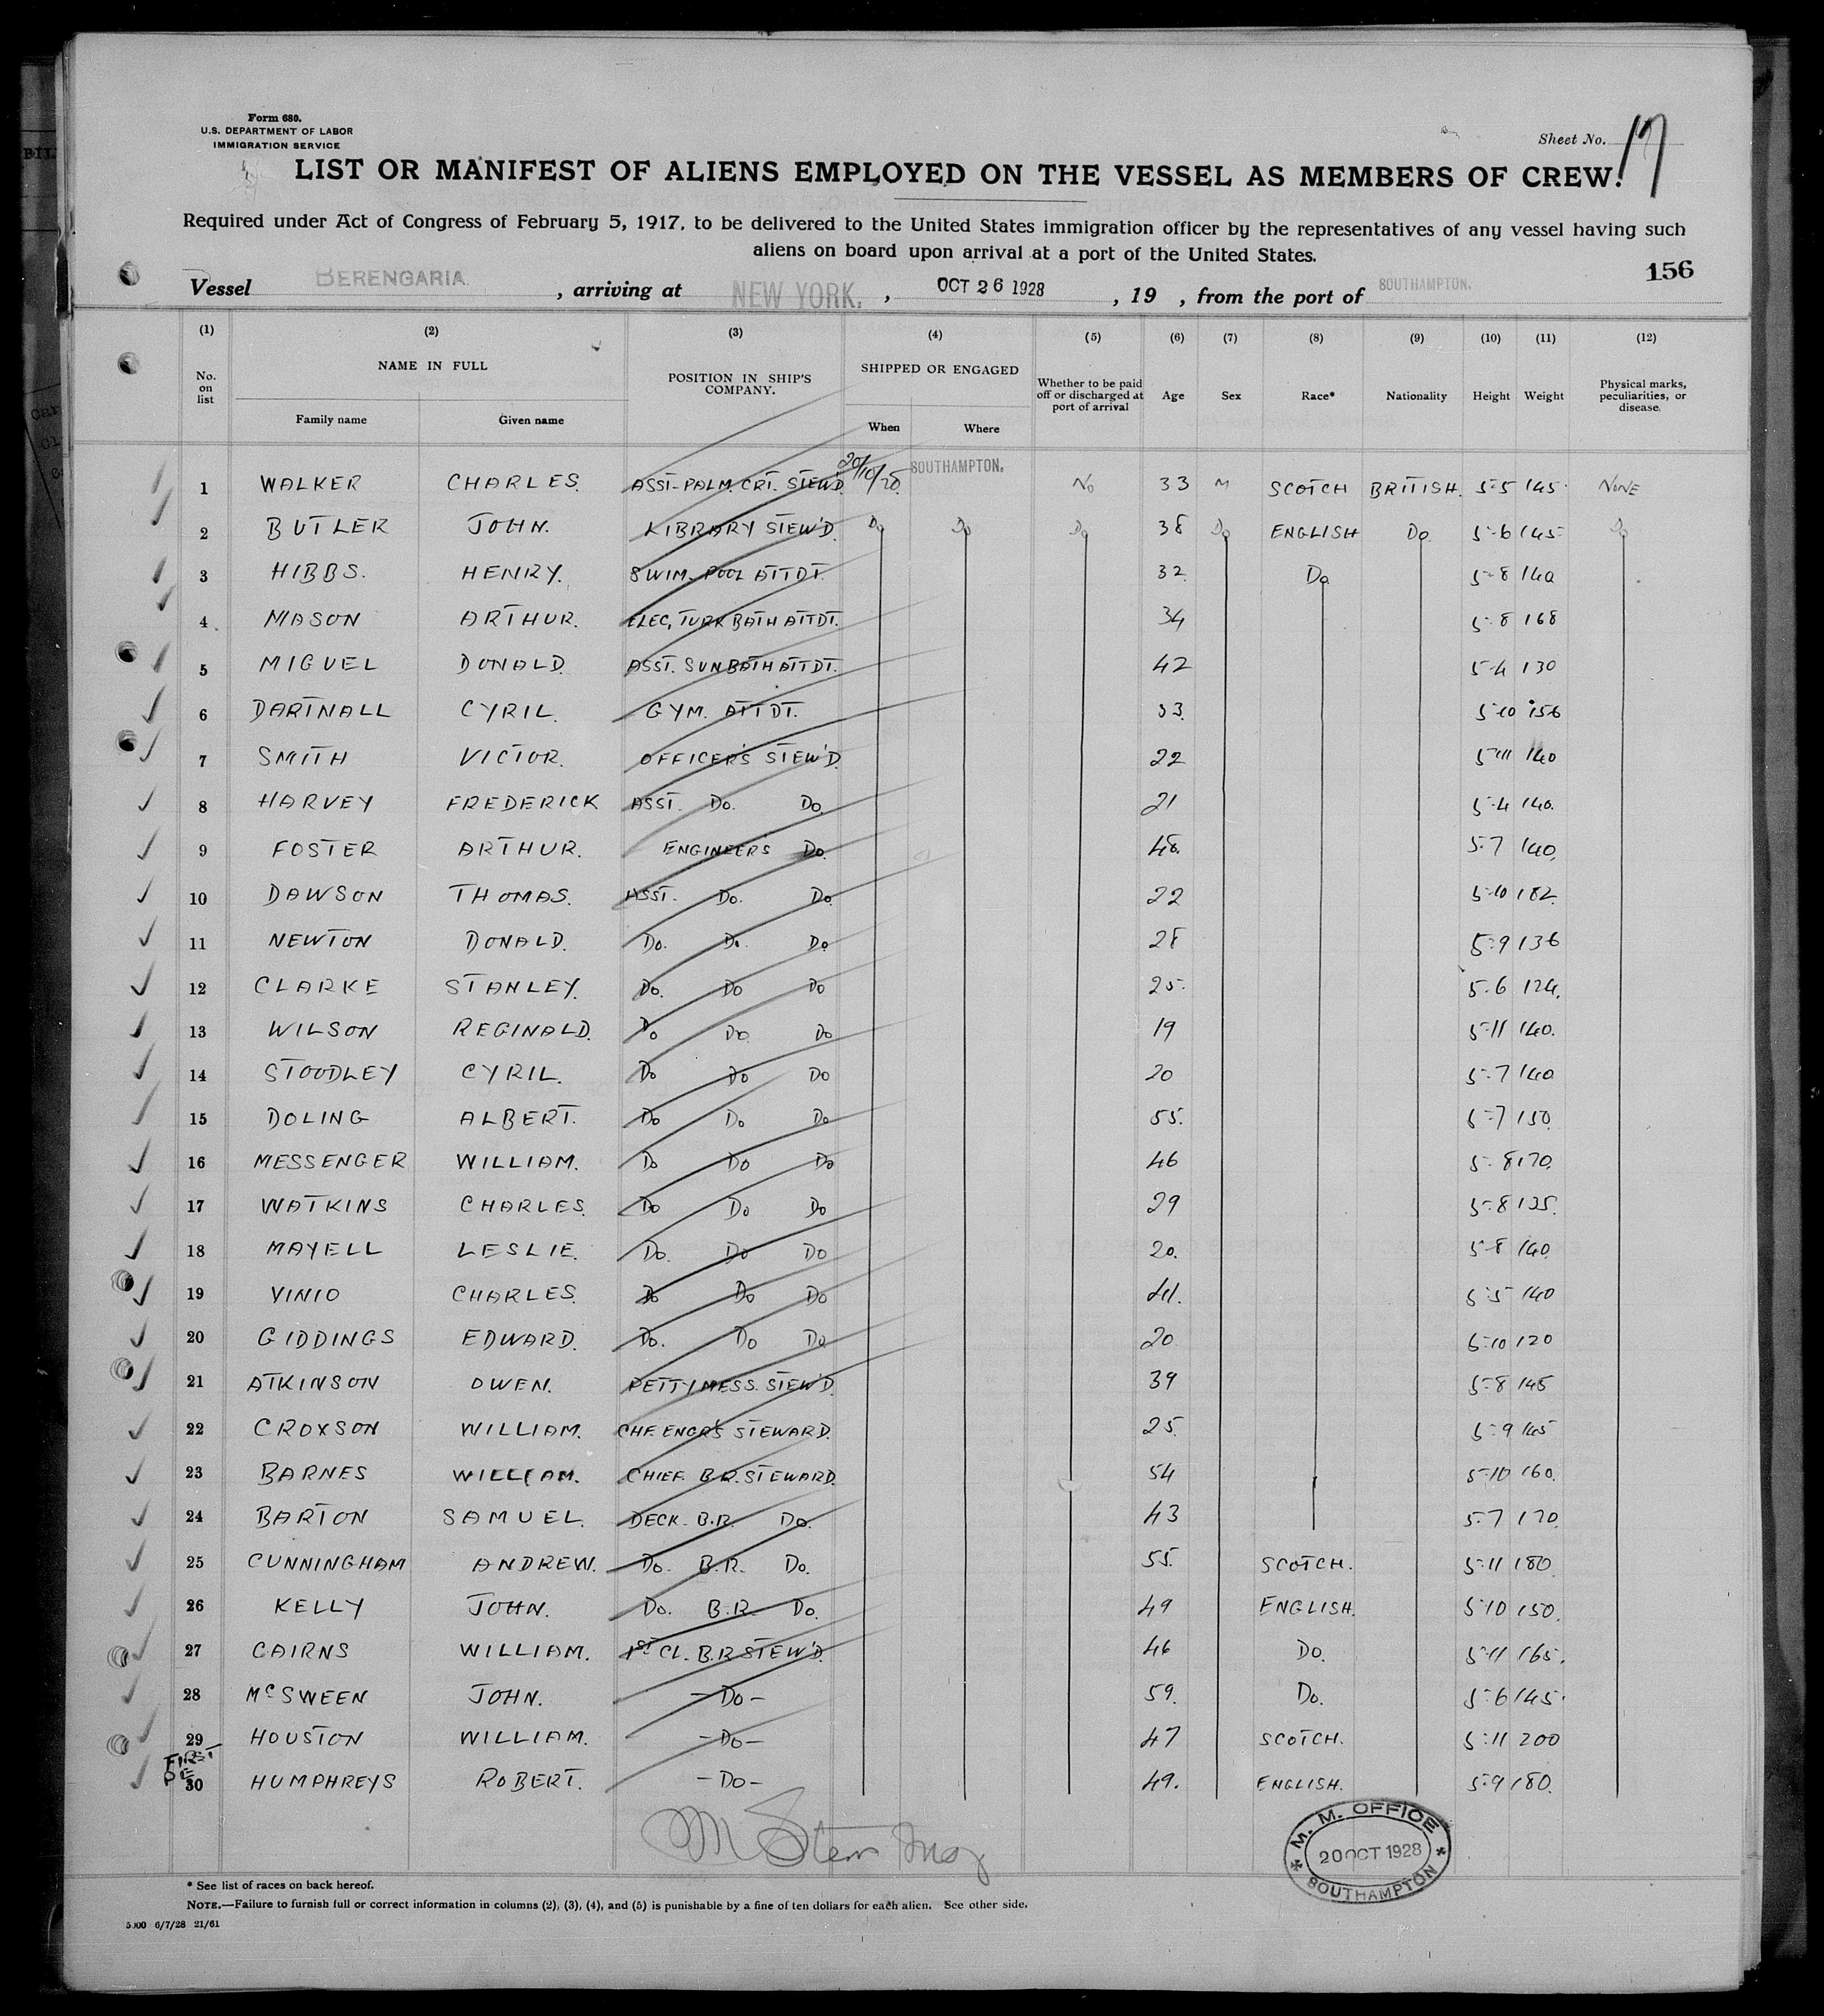 Form 680.
U.S. DEPARTMENT OF LABOR
IMMIGRATION SERVICE
Sheet No. 17
LIST OR MANIFEST OF ALIENS EMPLOYED ON THE VESSEL AS MEMBERS OF CREW.
Required under Act of Congress of February 5, 1917, to be delivered to the United States immigration officer by the representatives of any vessel having such
aliens on board upon arrival at a port of the United States.
156
Vessel BERENGARIA. , arriving at NEW YORK. , OCT 26 1928 , 19 , from the port of SOUTHAMPTON.
(1) (2) (3) (4) (5) (6) (7) (8) (9) (10) (11) (12)
No. on list NAME IN FULL Family name Given name POSITION IN SHIP'S COMPANY. SHIPPED OR ENGAGED When Where Whether to be paid off or discharged at port of arrival Age Sex Race* Nationality Height Weight Physical marks, peculiarities, or disease.
1 WALKER CHARLES. ASST-PALM. CRT. STEW'D 20/10/28. SOUTHAMPTON. No 33 M SCOTCH BRITISH. 5-5 145 NONE
2 BUTLER JOHN. LIBRARY STEW'D. Do Do Do 38 Do ENGLISH Do. 5-6 145 Do
3 HIBBS. HENRY. SWIM-POOL ATTDT. 32. Do 5-8 140
4 MASON ARTHUR. ELEC, TURK BATH ATTDT. 34 5-8 168
5 MIGUEL DONALD. ASST. SUN BATH ATTDT. 42 5-4 130
6 DARTNALL CYRIL. GYM. ATTDT. 33. 5-10 156
7 SMITH VICTOR. OFFICER'S STEW'D. 22 5-11 140
8 HARVEY FREDERICK ASST. Do. Do. 21 5-4 140.
9 FOSTER ARTHUR. ENGINEERS Do. 48. 5-7 140.
10 DAWSON THOMAS. ASST. Do. Do. 22 5-10 182.
11 NEWTON DONALD. Do. Do. Do 28 5-9 136
12 CLARKE STANLEY. Do. Do Do 25. 5-6 124.
13 WILSON REGINALD. Do Do Do 19 5-11 140.
14 STOODLEY CYRIL. Do Do Do 20 5-7 140
15 DOLING ALBERT. Do Do Do 55. 5-7 150.
16 MESSENGER WILLIAM. Do Do Do 46 5-8 170.
17 WATKINS CHARLES. Do Do Do 29 5-8 135.
18 MAYELL LESLIE. Do. Do Do 20. 5-8 140.
19 VINIO CHARLES. Do Do Do 41. 5-5 140
20 GIDDINGS EDWARD. Do. Do Do 20 5-10 120
21 ATKINSON OWEN. PETTY MESS. STEW'D 39 5-8 145
22 CROXSON WILLIAM. CHF. ENGR'S STEWARD. 25. 5-9 145
23 BARNES WILLIAM. CHIEF. B.R. STEWARD. 54 5-10 160.
24 BARTON SAMUEL. DECK. B.R. Do. 43 5-7 170.
25 CUNNINGHAM ANDREW. Do. B.R. Do. 55. SCOTCH. 5-11 180.
26 KELLY JOHN. Do. B.R. Do. 49 ENGLISH. 5-10 150.
27 CAIRNS WILLIAM. 1ST CL. B.R STEW'D. 46 Do. 5-11 165.
28 McSWEEN JOHN. -Do- 59. Do. 5-6 145.
29 HOUSTON WILLIAM. -Do- 47 SCOTCH. 5-11 200
30 HUMPHREYS ROBERT. -Do- 49. ENGLISH. 5-9 180.
M. M. OFFICE
20 OCT 1928
SOUTHAMPTON
* See list of races on back hereof.
NOTE.—Failure to furnish full or correct information in columns (2), (3), (4), and (5) is punishable by a fine of ten dollars for each alien. See other side.
5000 6/7/28 21/61